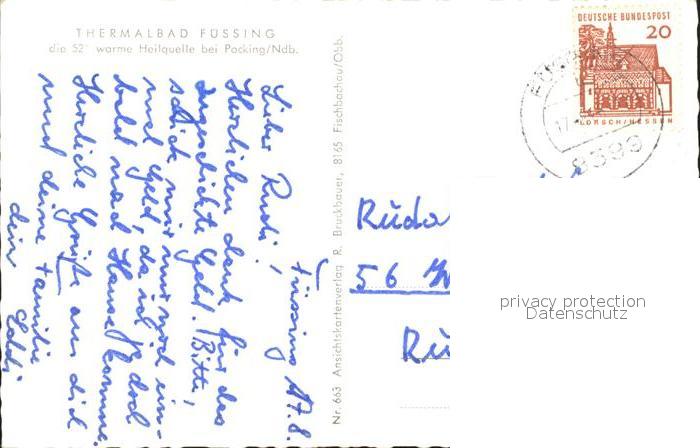 THERMALBAD FÜSSING
die 52° warme Heilquelle bei Pocking/Ndb.
Füssing 17.8.
Lieber Rudi!
Herzlichen dank für das
geschickte Geld. Bitte,
schick mir nur noch ein-
mal Geld, da ich doch
bald nach Hause komme.
Herzliche Grüße an dich
und deine Familie
dein
Nr. 663 Ansichtskartenverlag R. Bruckbauer, 8165 Fischbachau/Obb.
DEUTSCHE BUNDESPOST
20
LORSCH/HESSEN
17
8399
Ruda
56
Rü
privacy protection
Datenschutz